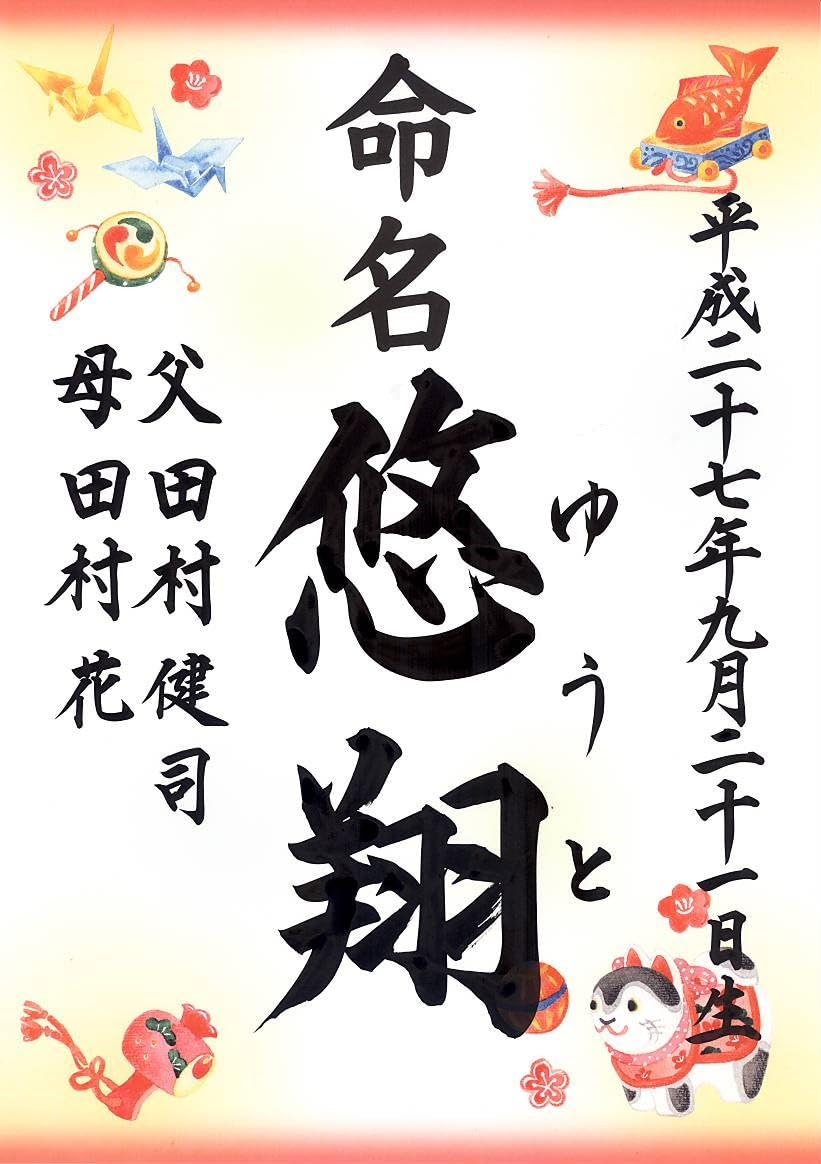 平成二十七年九月二十一日生
命名 悠翔
ゆうと
父 田村健司
母 田村花